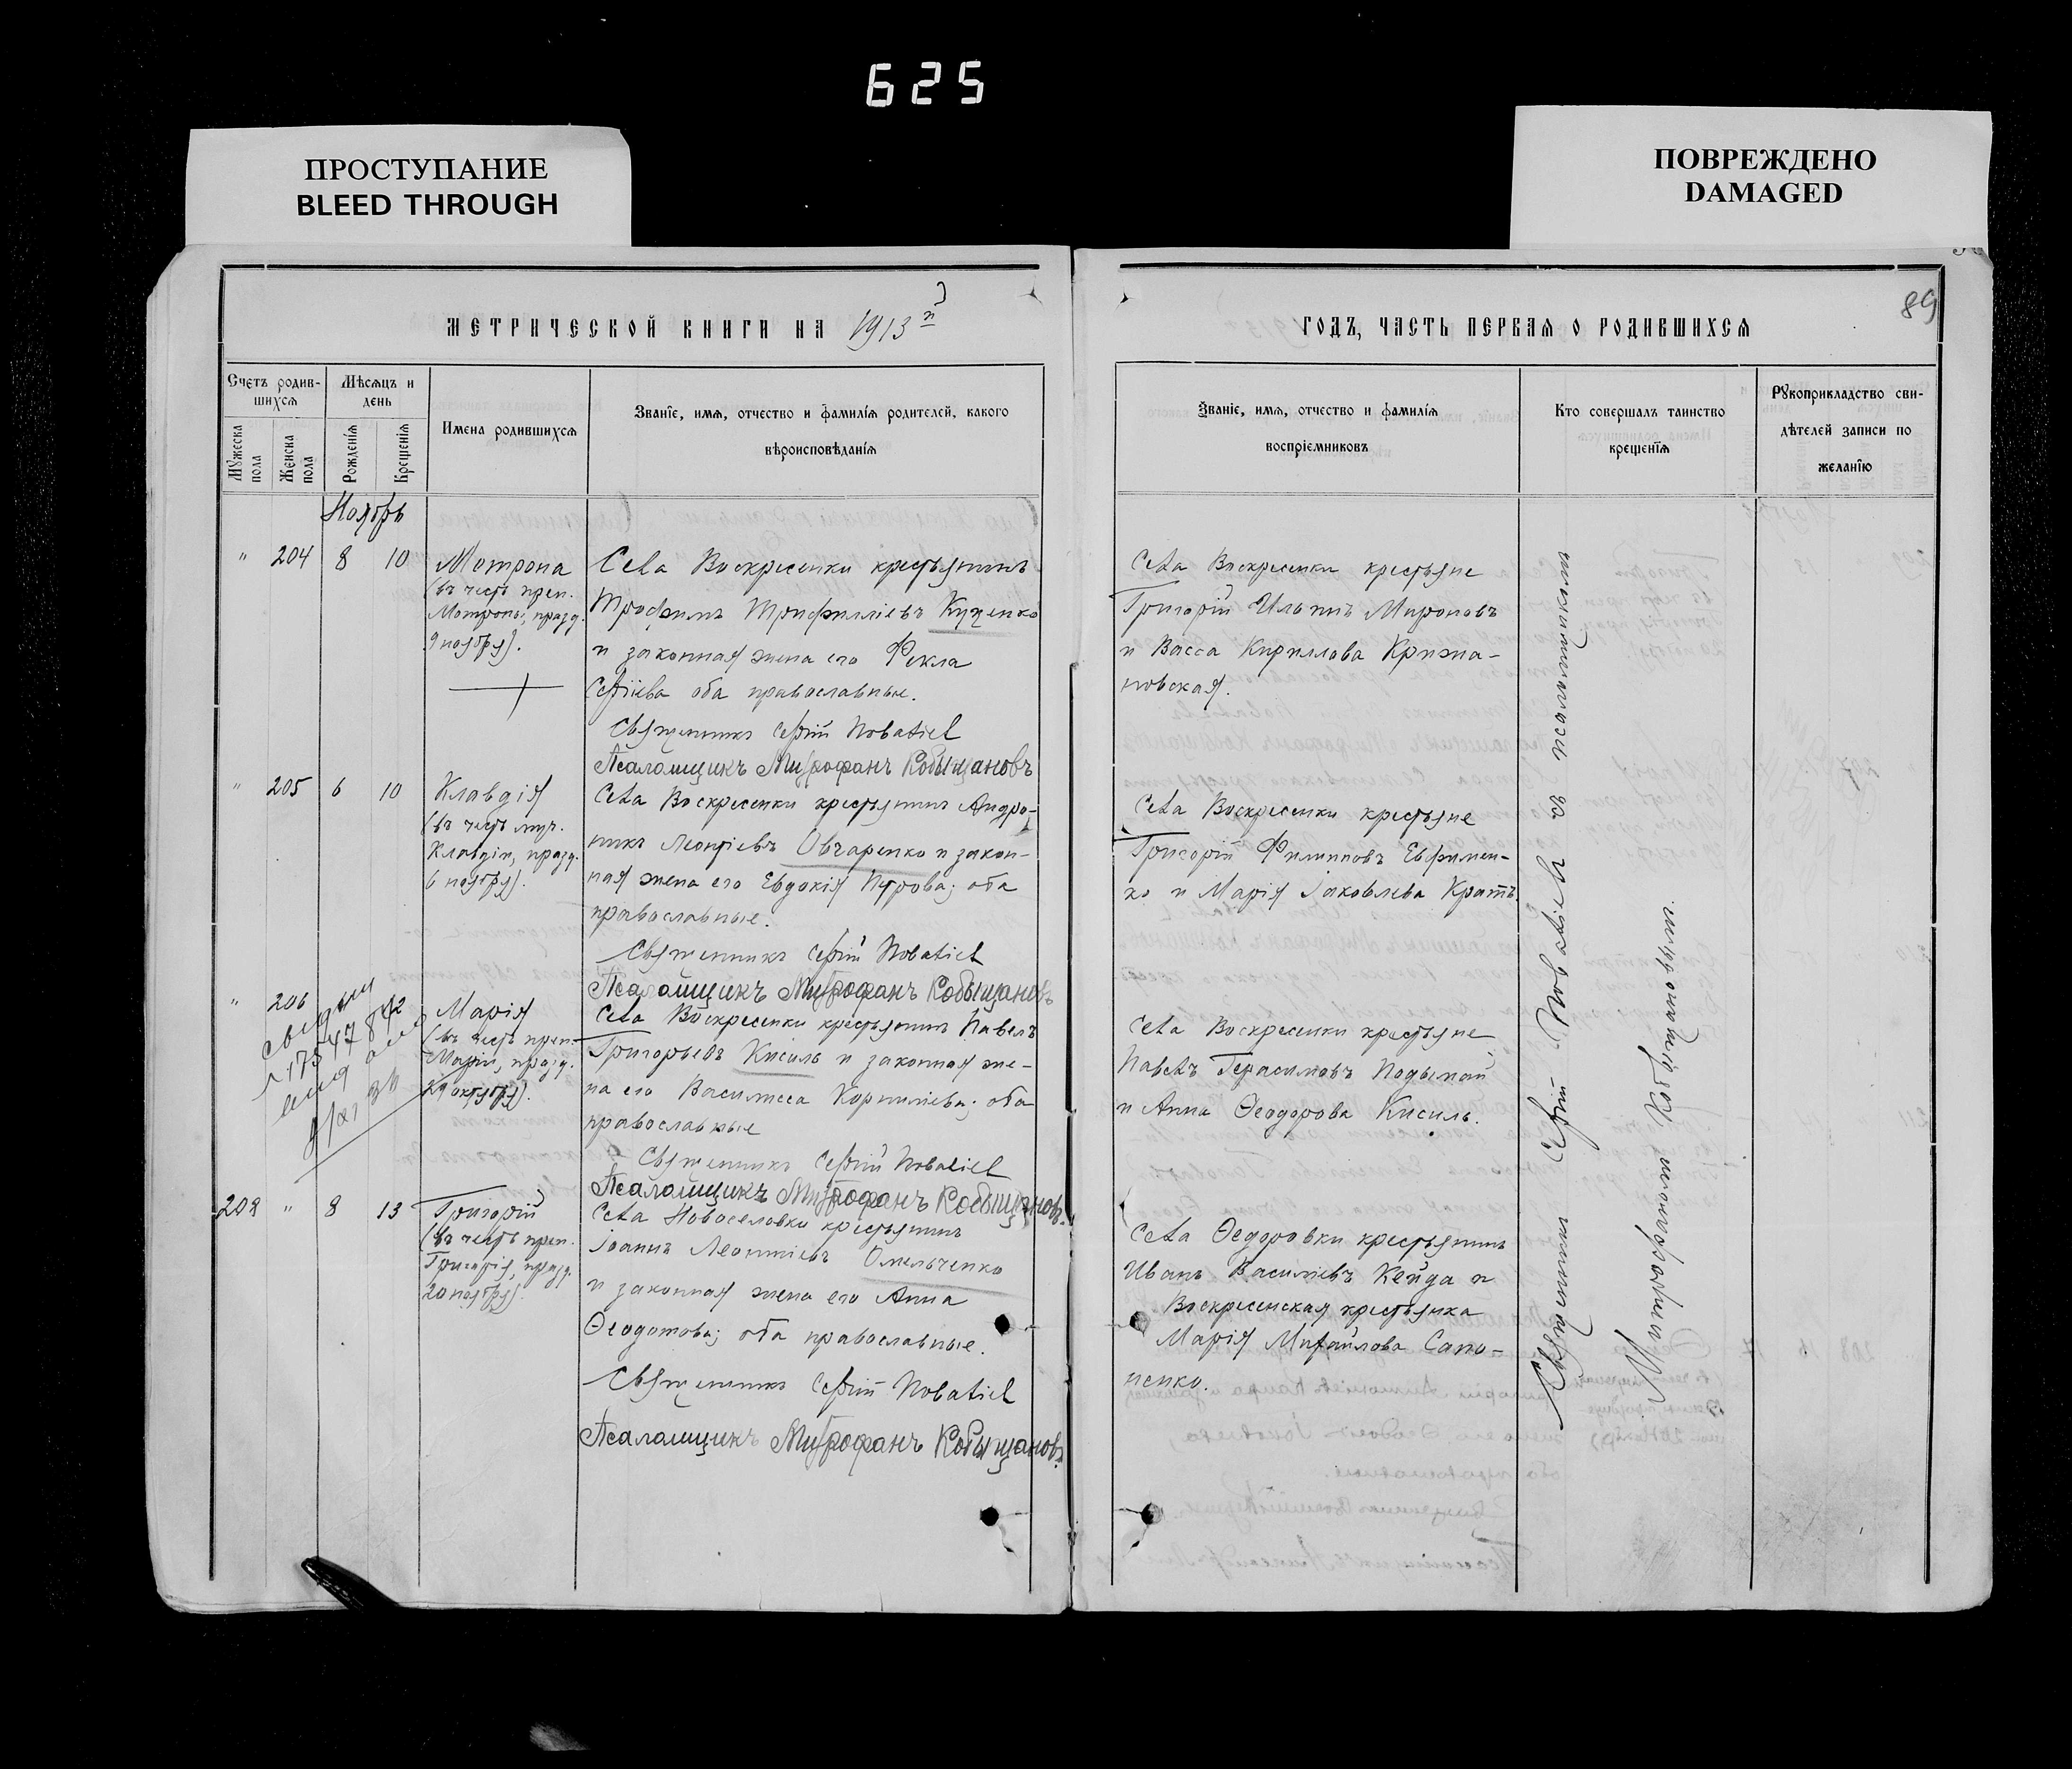 625
ПРОСТУПАНИЕ
BLEED THROUGH
ПОВРЕЖДЕНО
DAMAGED
МЕТРИЧЕСКОЙ КНИГИ НА 1913
Счетъ родив-
шихся
Мужеска пола
Женска пола
Мѣсяцъ и
день
Рожденія
Крещенія
Имена родившихся
Званіе, имя, отчество и фамилія родителей, какого
вѣроисповѣданія
Ноябрь
" 204 8 10
Мотрона
(въ честь преп.
Мотроны, празд.
9 ноября).
Села Воскресенки крестьянинъ
Трофимъ Трифилліевъ Куценко
и законная жена его Фекла
Сергіева оба православные.
Священникъ Сергій
Псаломщикъ Митрофанъ Кобыщановъ
" 205 6 10
Клавдія
(въ честь муч.
Клавдіи, празд.
6 ноября).
Села Воскресенки крестьянинъ Андро-
никъ Леонтіевъ Овчаренко и закон-
ная жена его Евдокія Петрова; оба
православные.
Священникъ Сергій
Псаломщикъ Митрофанъ Кобыщановъ
" 206
Марія
(въ честь преп.
Маріи, празд.
29 октября).
Села Воскресенки крестьянинъ Павелъ
Григорьевъ Кисиль и законная же-
на его Василисса Корнилiева; оба
православные
Священникъ Сергій
Псаломщикъ Митрофанъ Кобыщановъ.
208 " 8 13
Григорій
(въ честь преп.
Григорія, празд.
20 ноября).
Села Новоселовки крестьянинъ
Іоаннъ Леонтіевъ Омельченко
и законная жена его Анна
Ѳеодотова; оба православные.
Священникъ Сергій
Псаломщикъ Митрофанъ Кобыщановъ.
89
ГОДЪ, ЧАСТЬ ПЕРВАЯ О РОДИВШИХСЯ
Званіе, имя, отчество и фамилія
воспріемниковъ
Кто совершалъ таинство
крещенія
Рукоприкладство сви-
дѣтелей записи по
желанію
Села Воскресенки крестьяне
Григорій Ильинъ Мироновъ
и Васса Кириллова Крижа-
новская.
Села Воскресенки крестьяне
Григорій Филиповъ Евфимен-
ко и Марія Іаковлева Кратъ.
Села Воскресенки крестьяне
Павелъ Герасимовъ Подымай
и Анна Ѳеодорова Кисиль.
Села Ѳедоровки крестьянинъ
Иванъ Василіевъ Кейда и
Воскресенская крестьянка
Марія Михайлова Сапо-
ненко.
Священникъ Сергій съ псаломщикомъ
Митрофаномъ Кобыщановымъ